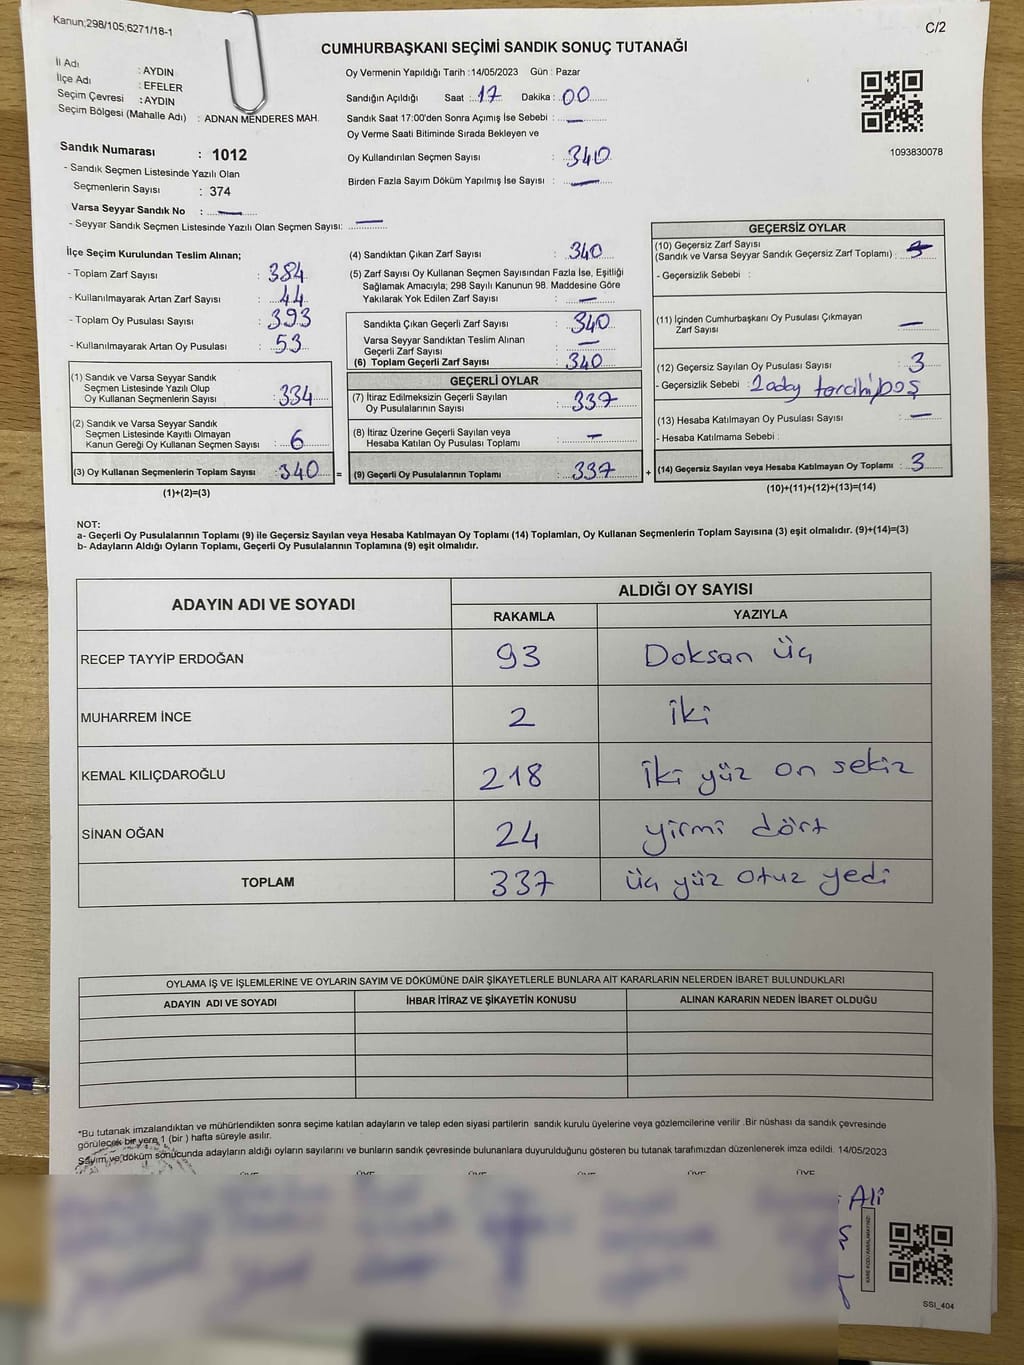 Kanun;298/105;6271/18-1
C/2
CUMHURBAŞKANI SEÇİMİ SANDIK SONUÇ TUTANAĞI
İl Adı : AYDIN
İlçe Adı : EFELER
Seçim Çevresi : AYDIN
Seçim Bölgesi (Mahalle Adı) : ADNAN MENDERES MAH.
Oy Vermenin Yapıldığı Tarih :14/05/2023 Gün : Pazar
Sandığın Açıldığı Saat : 17 Dakika : 00
Sandık Saat 17:00'den Sonra Açımış İse Sebebi : —
Oy Verme Saati Bitiminde Sırada Bekleyen ve
Oy Kullandırılan Seçmen Sayısı : 340
Birden Fazla Sayım Döküm Yapılmış İse Sayısı : —
1093830078
Sandık Numarası : 1012
- Sandık Seçmen Listesinde Yazılı Olan
Seçmenlerin Sayısı : 374
Varsa Seyyar Sandık No : —
- Seyyar Sandık Seçmen Listesinde Yazılı Olan Seçmen Sayısı: —
İlçe Seçim Kurulundan Teslim Alınan;
- Toplam Zarf Sayısı : 384
- Kullanılmayarak Artan Zarf Sayısı : 44
- Toplam Oy Pusulası Sayısı : 393
- Kullanılmayarak Artan Oy Pusulası : 53
(1) Sandık ve Varsa Seyyar Sandık
Seçmen Listesinde Yazılı Olup
Oy Kullanan Seçmenlerin Sayısı : 334
(2) Sandık ve Varsa Seyyar Sandık
Seçmen Listesinde Kayıtlı Olmayan
Kanun Gereği Oy Kullanan Seçmen Sayısı : 6
(3) Oy Kullanan Seçmenlerin Toplam Sayısı : 340 =
(1)+(2)=(3)
(4) Sandıktan Çıkan Zarf Sayısı : 340
(5) Zarf Sayısı Oy Kullanan Seçmen Sayısından Fazla İse, Eşitliği
Sağlamak Amacıyla; 298 Sayılı Kanunun 98. Maddesine Göre
Yakılarak Yok Edilen Zarf Sayısı : —
Sandıkta Çıkan Geçerli Zarf Sayısı : 340
Varsa Seyyar Sandıktan Teslim Alınan
Geçerli Zarf Sayısı : —
(6) Toplam Geçerli Zarf Sayısı : 340
GEÇERLİ OYLAR
(7) İtiraz Edilmeksizin Geçerli Sayılan
Oy Pusulalarının Sayısı : 337
(8) İtiraz Üzerine Geçerli Sayılan veya
Hesaba Katılan Oy Pusulası Toplamı : —
(9) Geçerli Oy Pusulalarının Toplamı : 337 +
GEÇERSİZ OYLAR
(10) Geçersiz Zarf Sayısı
(Sandık ve Varsa Seyyar Sandık Geçersiz Zarf Toplamı) :
- Geçersizlik Sebebi :
(11) İçinden Cumhurbaşkanı Oy Pusulası Çıkmayan
Zarf Sayısı : —
(12) Geçersiz Sayılan Oy Pusulası Sayısı : 3
- Geçersizlik Sebebi : 2 aday tercihi boş
(13) Hesaba Katılmayan Oy Pusulası Sayısı : —
- Hesaba Katılmama Sebebi :
(14) Geçersiz Sayılan veya Hesaba Katılmayan Oy Toplamı : 3
(10)+(11)+(12)+(13)=(14)
NOT:
a- Geçerli Oy Pusulalarının Toplamı (9) ile Geçersiz Sayılan veya Hesaba Katılmayan Oy Toplamı (14) Toplamları, Oy Kullanan Seçmenlerin Toplam Sayısına (3) eşit olmalıdır. (9)+(14)=(3)
b- Adayların Aldığı Oyların Toplamı, Geçerli Oy Pusulalarının Toplamına (9) eşit olmalıdır.
ADAYIN ADI VE SOYADI
ALDIĞI OY SAYISI
RAKAMLA YAZIYLA
RECEP TAYYİP ERDOĞAN 93 Doksan üç
MUHARREM İNCE 2 İki
KEMAL KILIÇDAROĞLU 218 İki yüz on sekiz
SİNAN OĞAN 24 yirmi dört
TOPLAM 337 üç yüz otuz yedi
OYLAMA İŞ VE İŞLEMLERİNE VE OYLARIN SAYIM VE DÖKÜMÜNE DAİR ŞİKAYETLERLE BUNLARA AİT KARARLARIN NELERDEN İBARET BULUNDUKLARI
ADAYIN ADI VE SOYADI İHBAR İTİRAZ VE ŞİKAYETİN KONUSU ALINAN KARARIN NEDEN İBARET OLDUĞU
*Bu tutanak imzalandıktan ve mühürlendikten sonra seçime katılan adayların ve talep eden siyasi partilerin sandık kurulu üyelerine veya gözlemcilerine verilir .Bir nüshası da sandık çevresinde
görülecek bir yere 1 (bir ) hafta süreyle asılır.
Sayım ve döküm sonucunda adayların aldığı oyların sayılarını ve bunların sandık çevresinde bulunanlara duyurulduğunu gösteren bu tutanak tarafımızdan düzenlenerek imza edildi. 14/05/2023
Ali
SSI_404